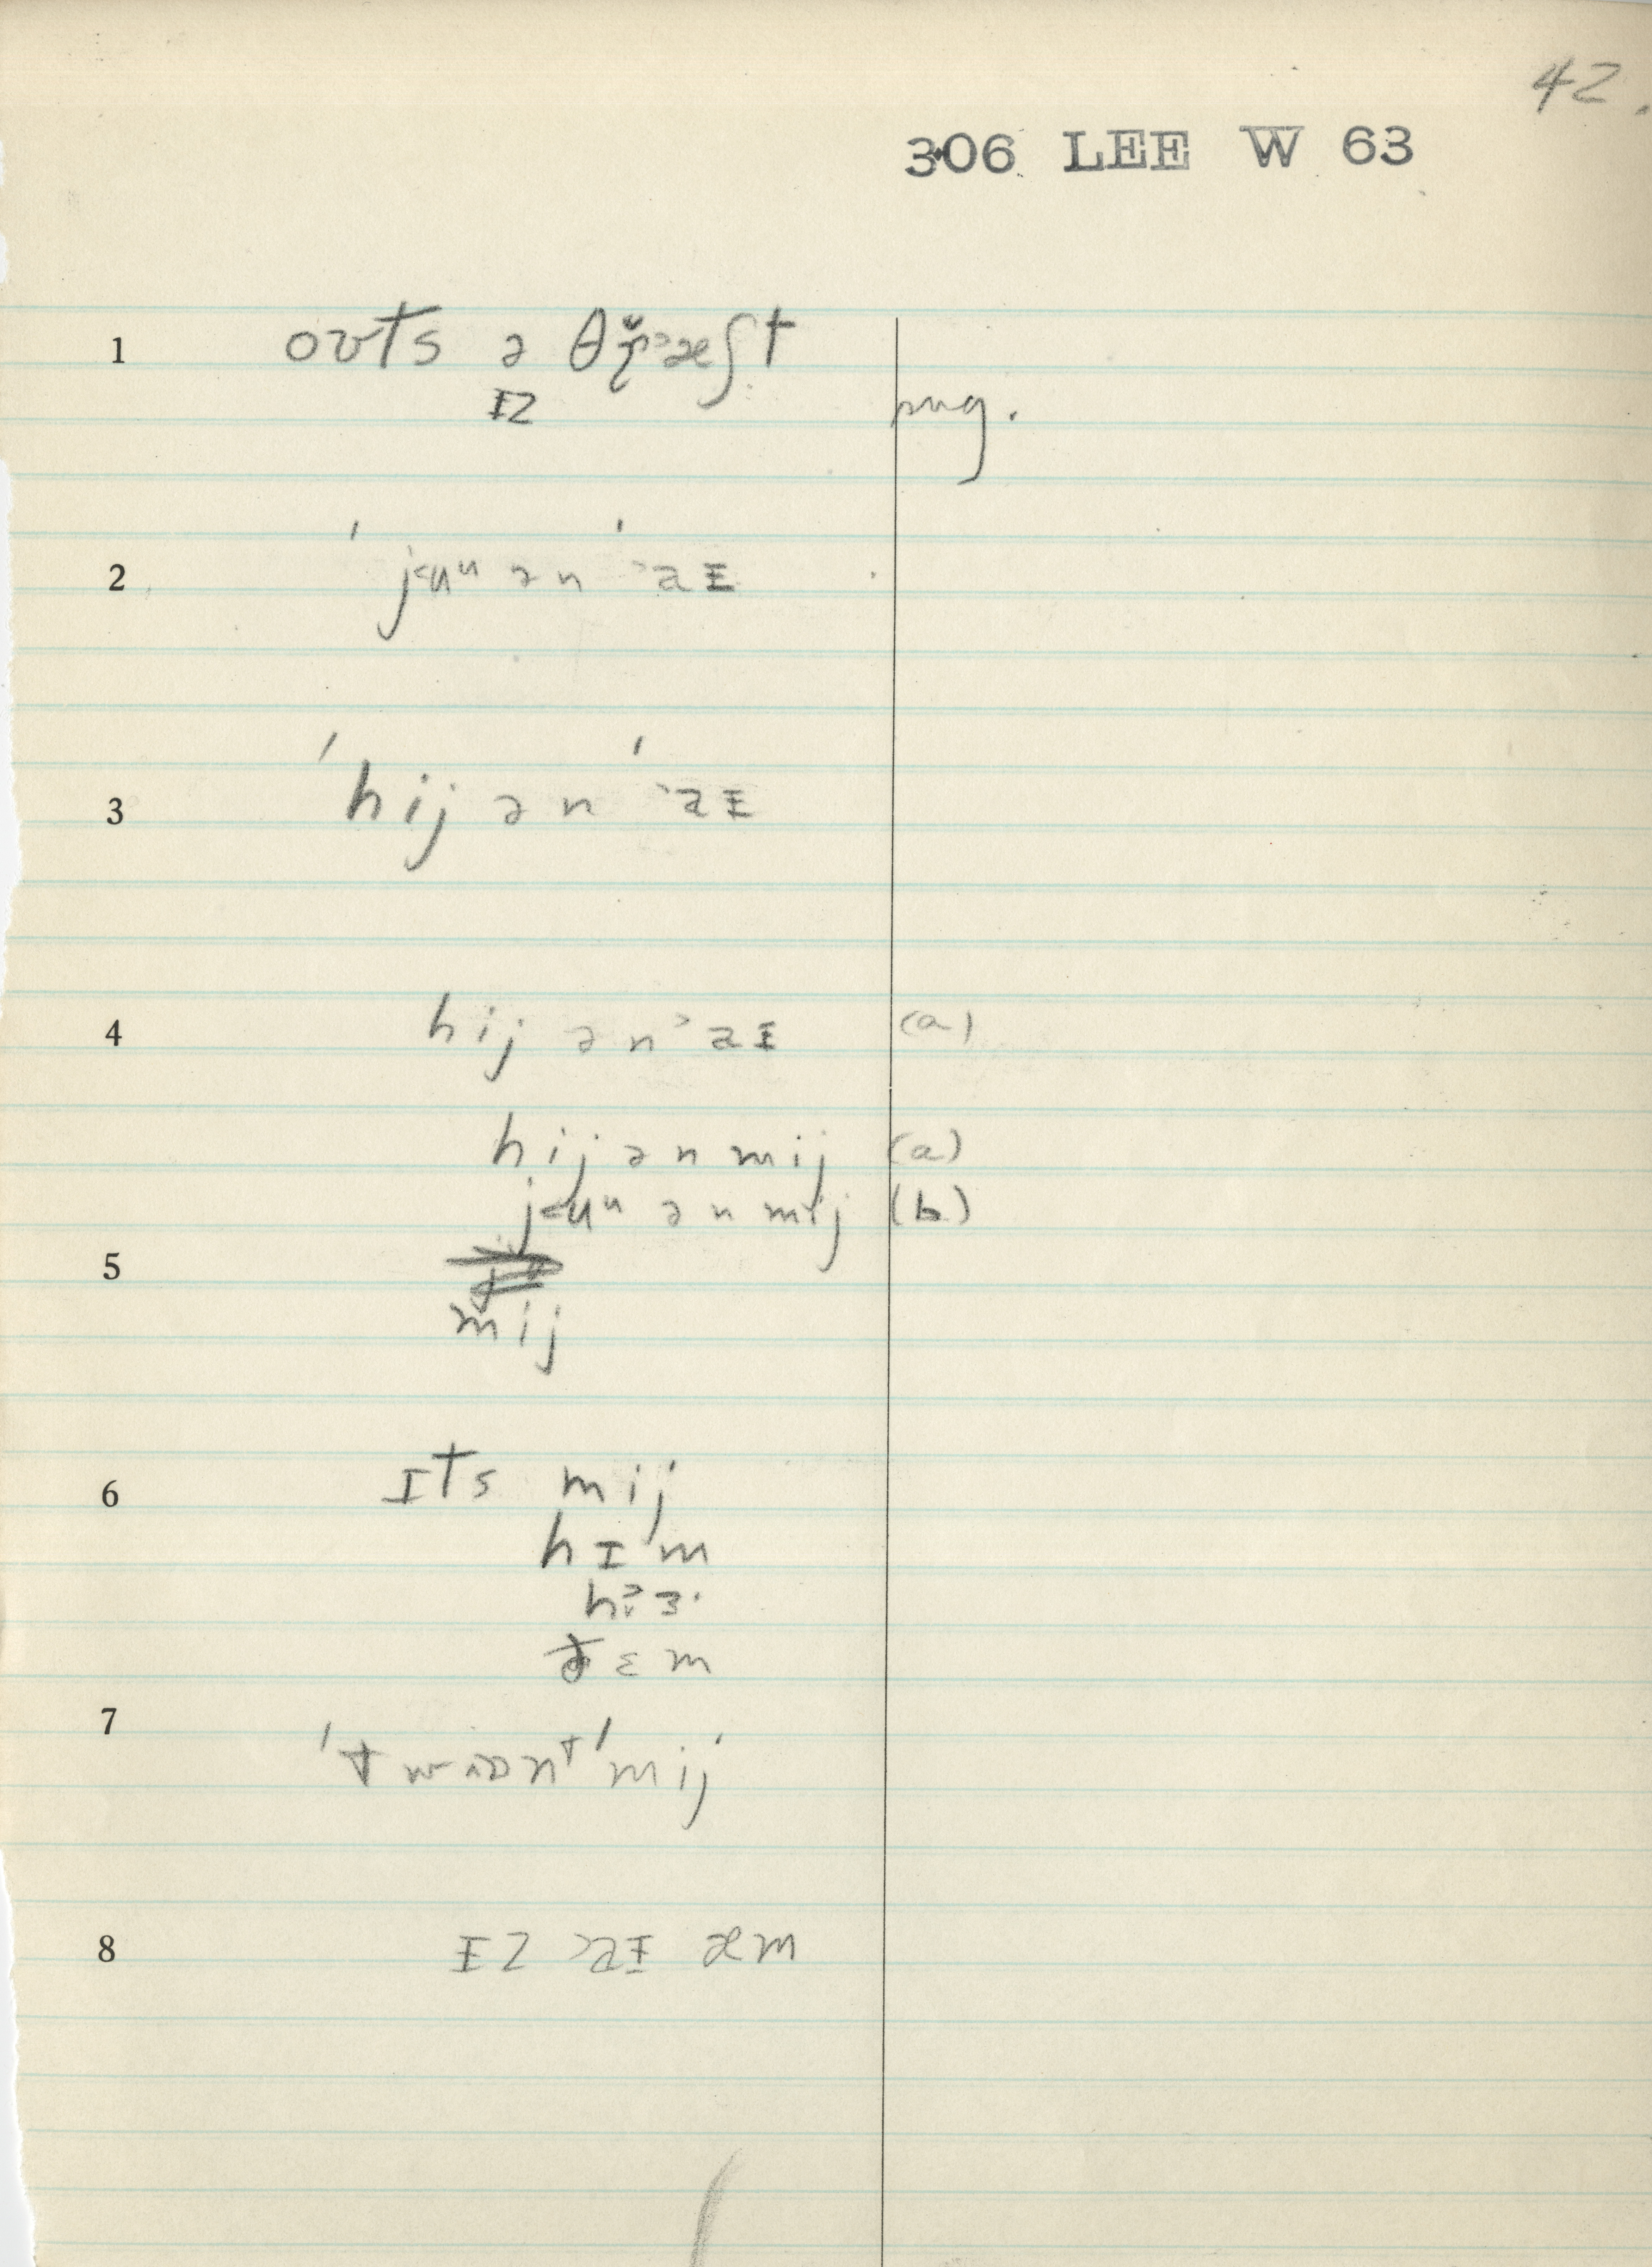 42.
306 LEE W 63
1 oʊts ə θɚ˃æʃt
ɪz
sug.
2 ' j˂ʉᵘ ə n ' ˃aɪ
3 ' hij ə n ' ˃aɪ
4 hij ə n ˃aɪ (a)
hij ə n mij (a)
j˂ʉᵘ ə n mij (b)
5
mij
6 ɪts mij
hɪm
h ɜ·
ðɛm
7 ' t w ɒnᵗ ' mij
8 ɪz ˃aɪ æm